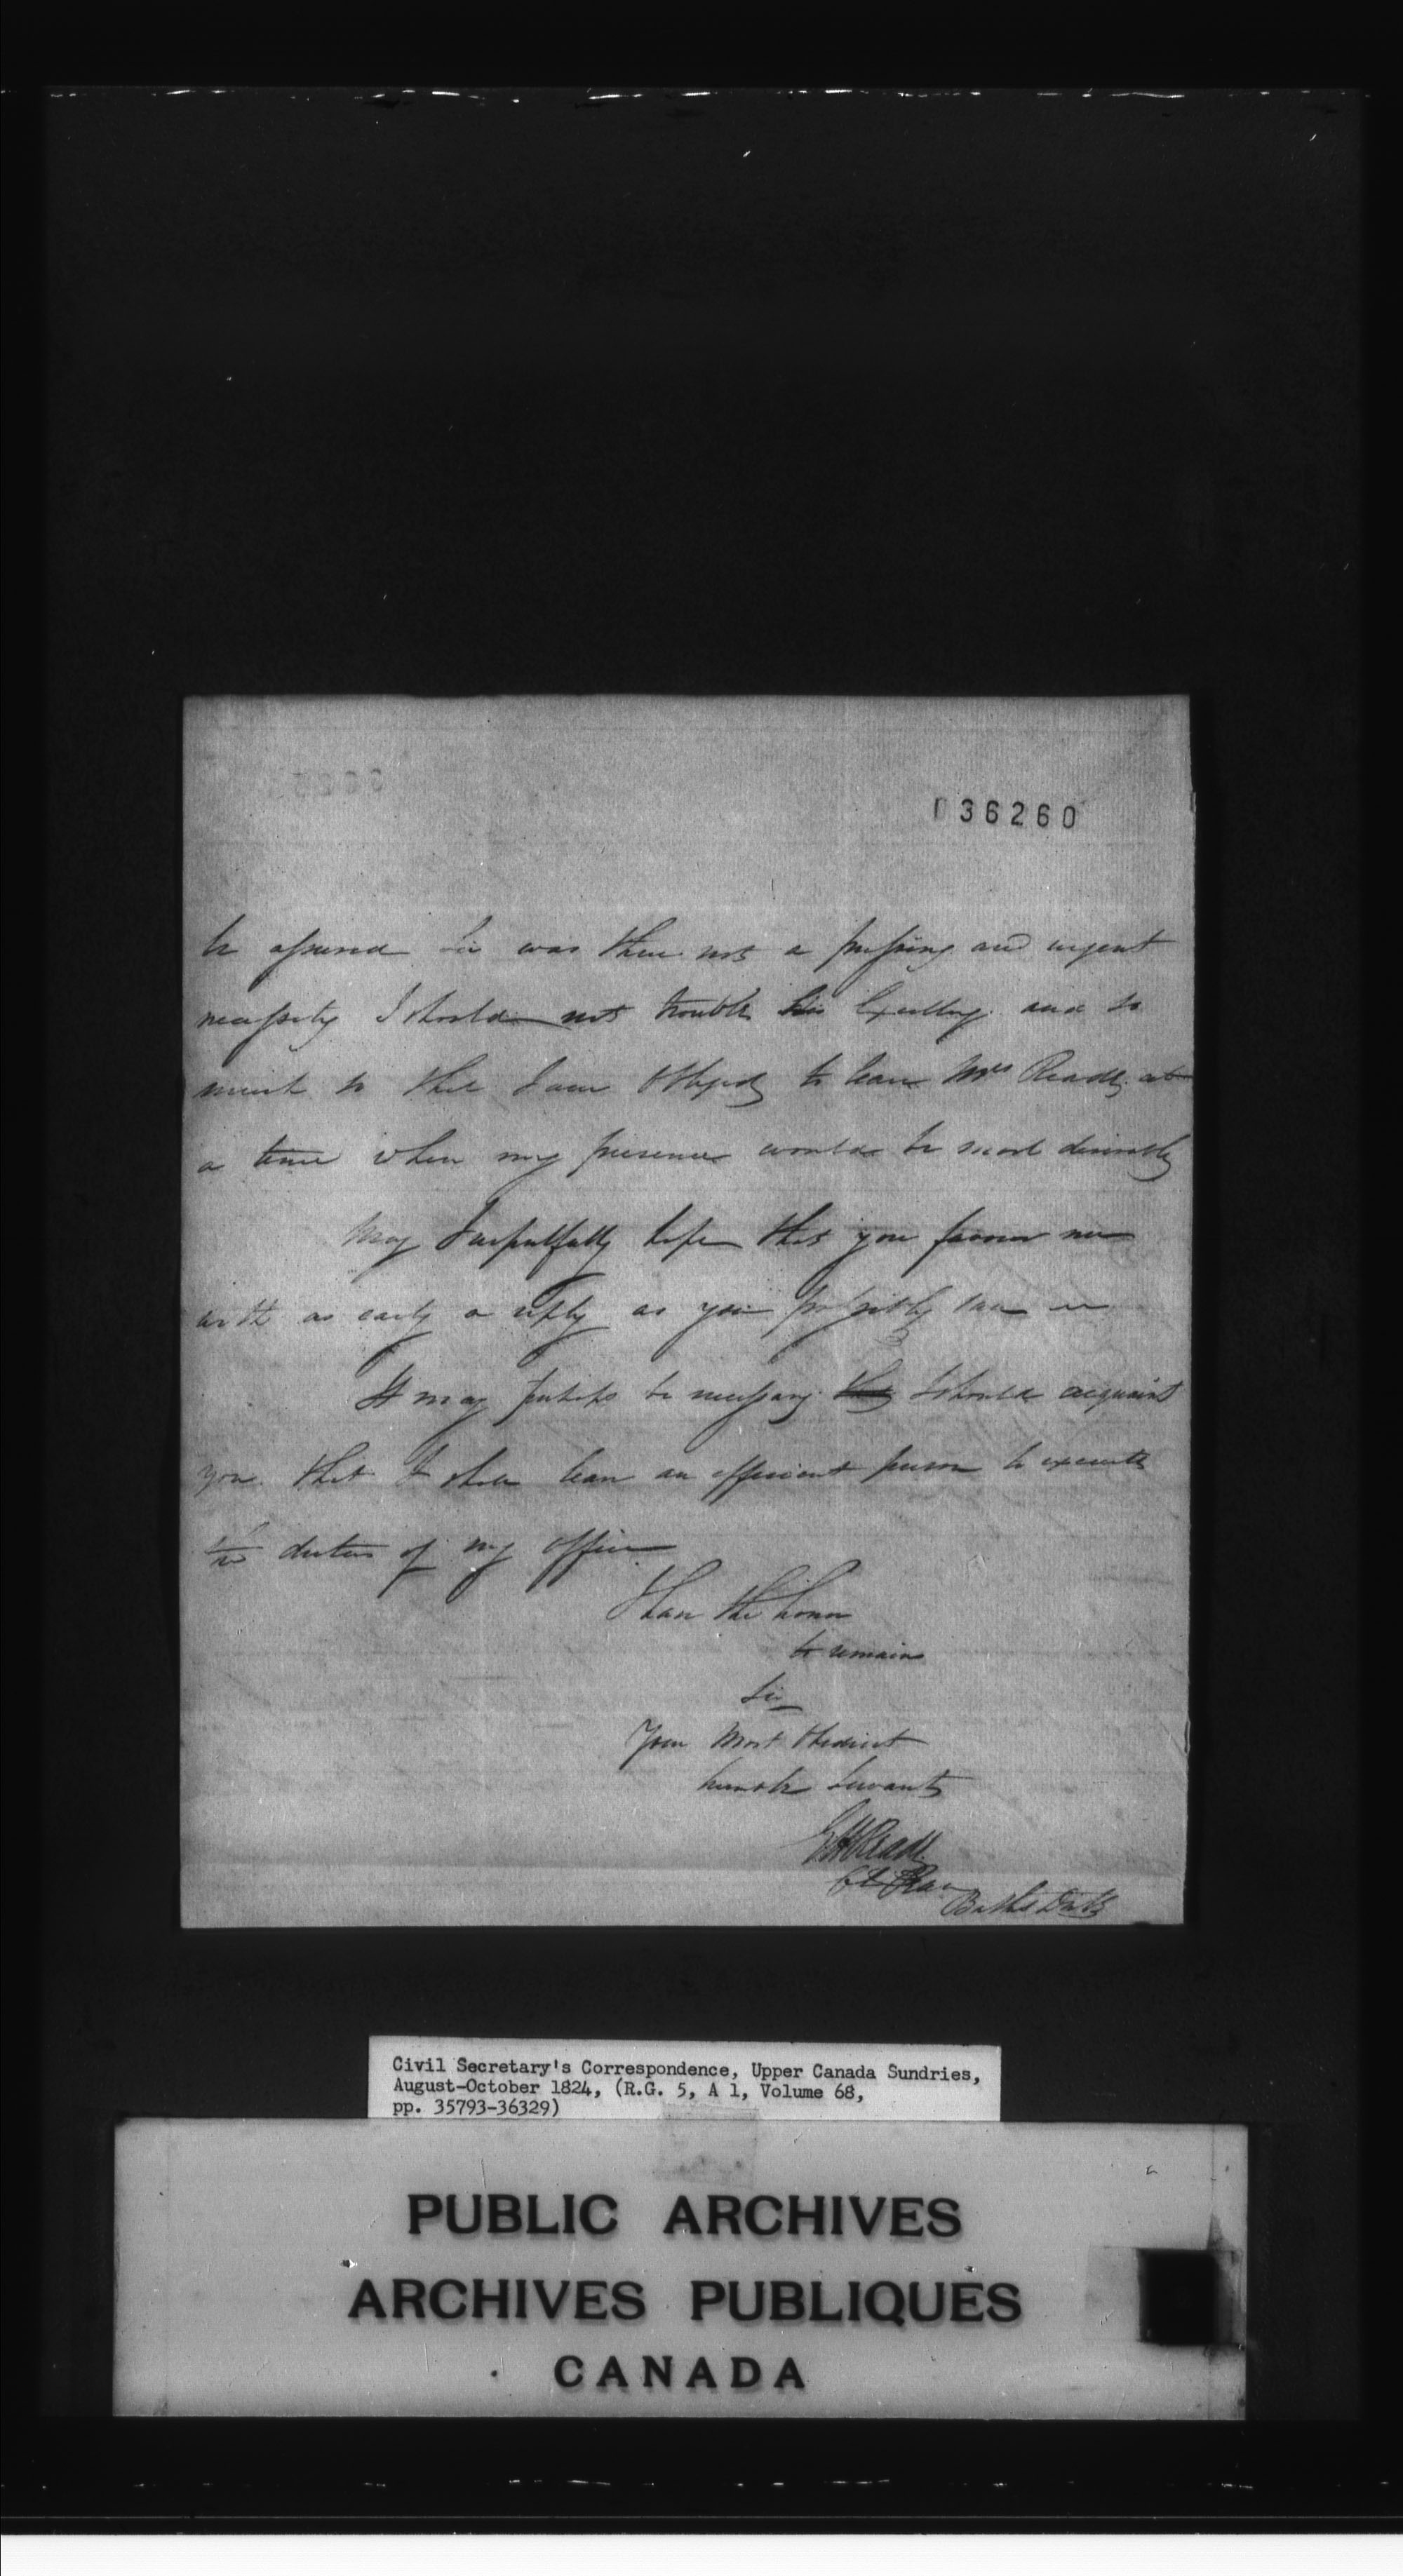 036260
be assured Sir was there not a pressing and urgent
necessity I should not trouble his Excellency and so
much so that I am obliged to leave Mrs Reade at
a time when my presence would be most desirable
May I respectfully hope that you favour me
with as early a reply as you possibly can
It may perhaps be necessary that I should acquaint
you that I shall leave an efficient person to execute
the duties of my office
I have the honor
to remain
Sir
Your Most Obedient
humble Servant
GHReade
Cl Peace
Bathst Dist
Civil Secretary's Correspondence, Upper Canada Sundries,
August-October 1824, (R.G. 5, A 1, Volume 68,
pp. 35793-36329)
PUBLIC ARCHIVES
ARCHIVES PUBLIQUES
CANADA